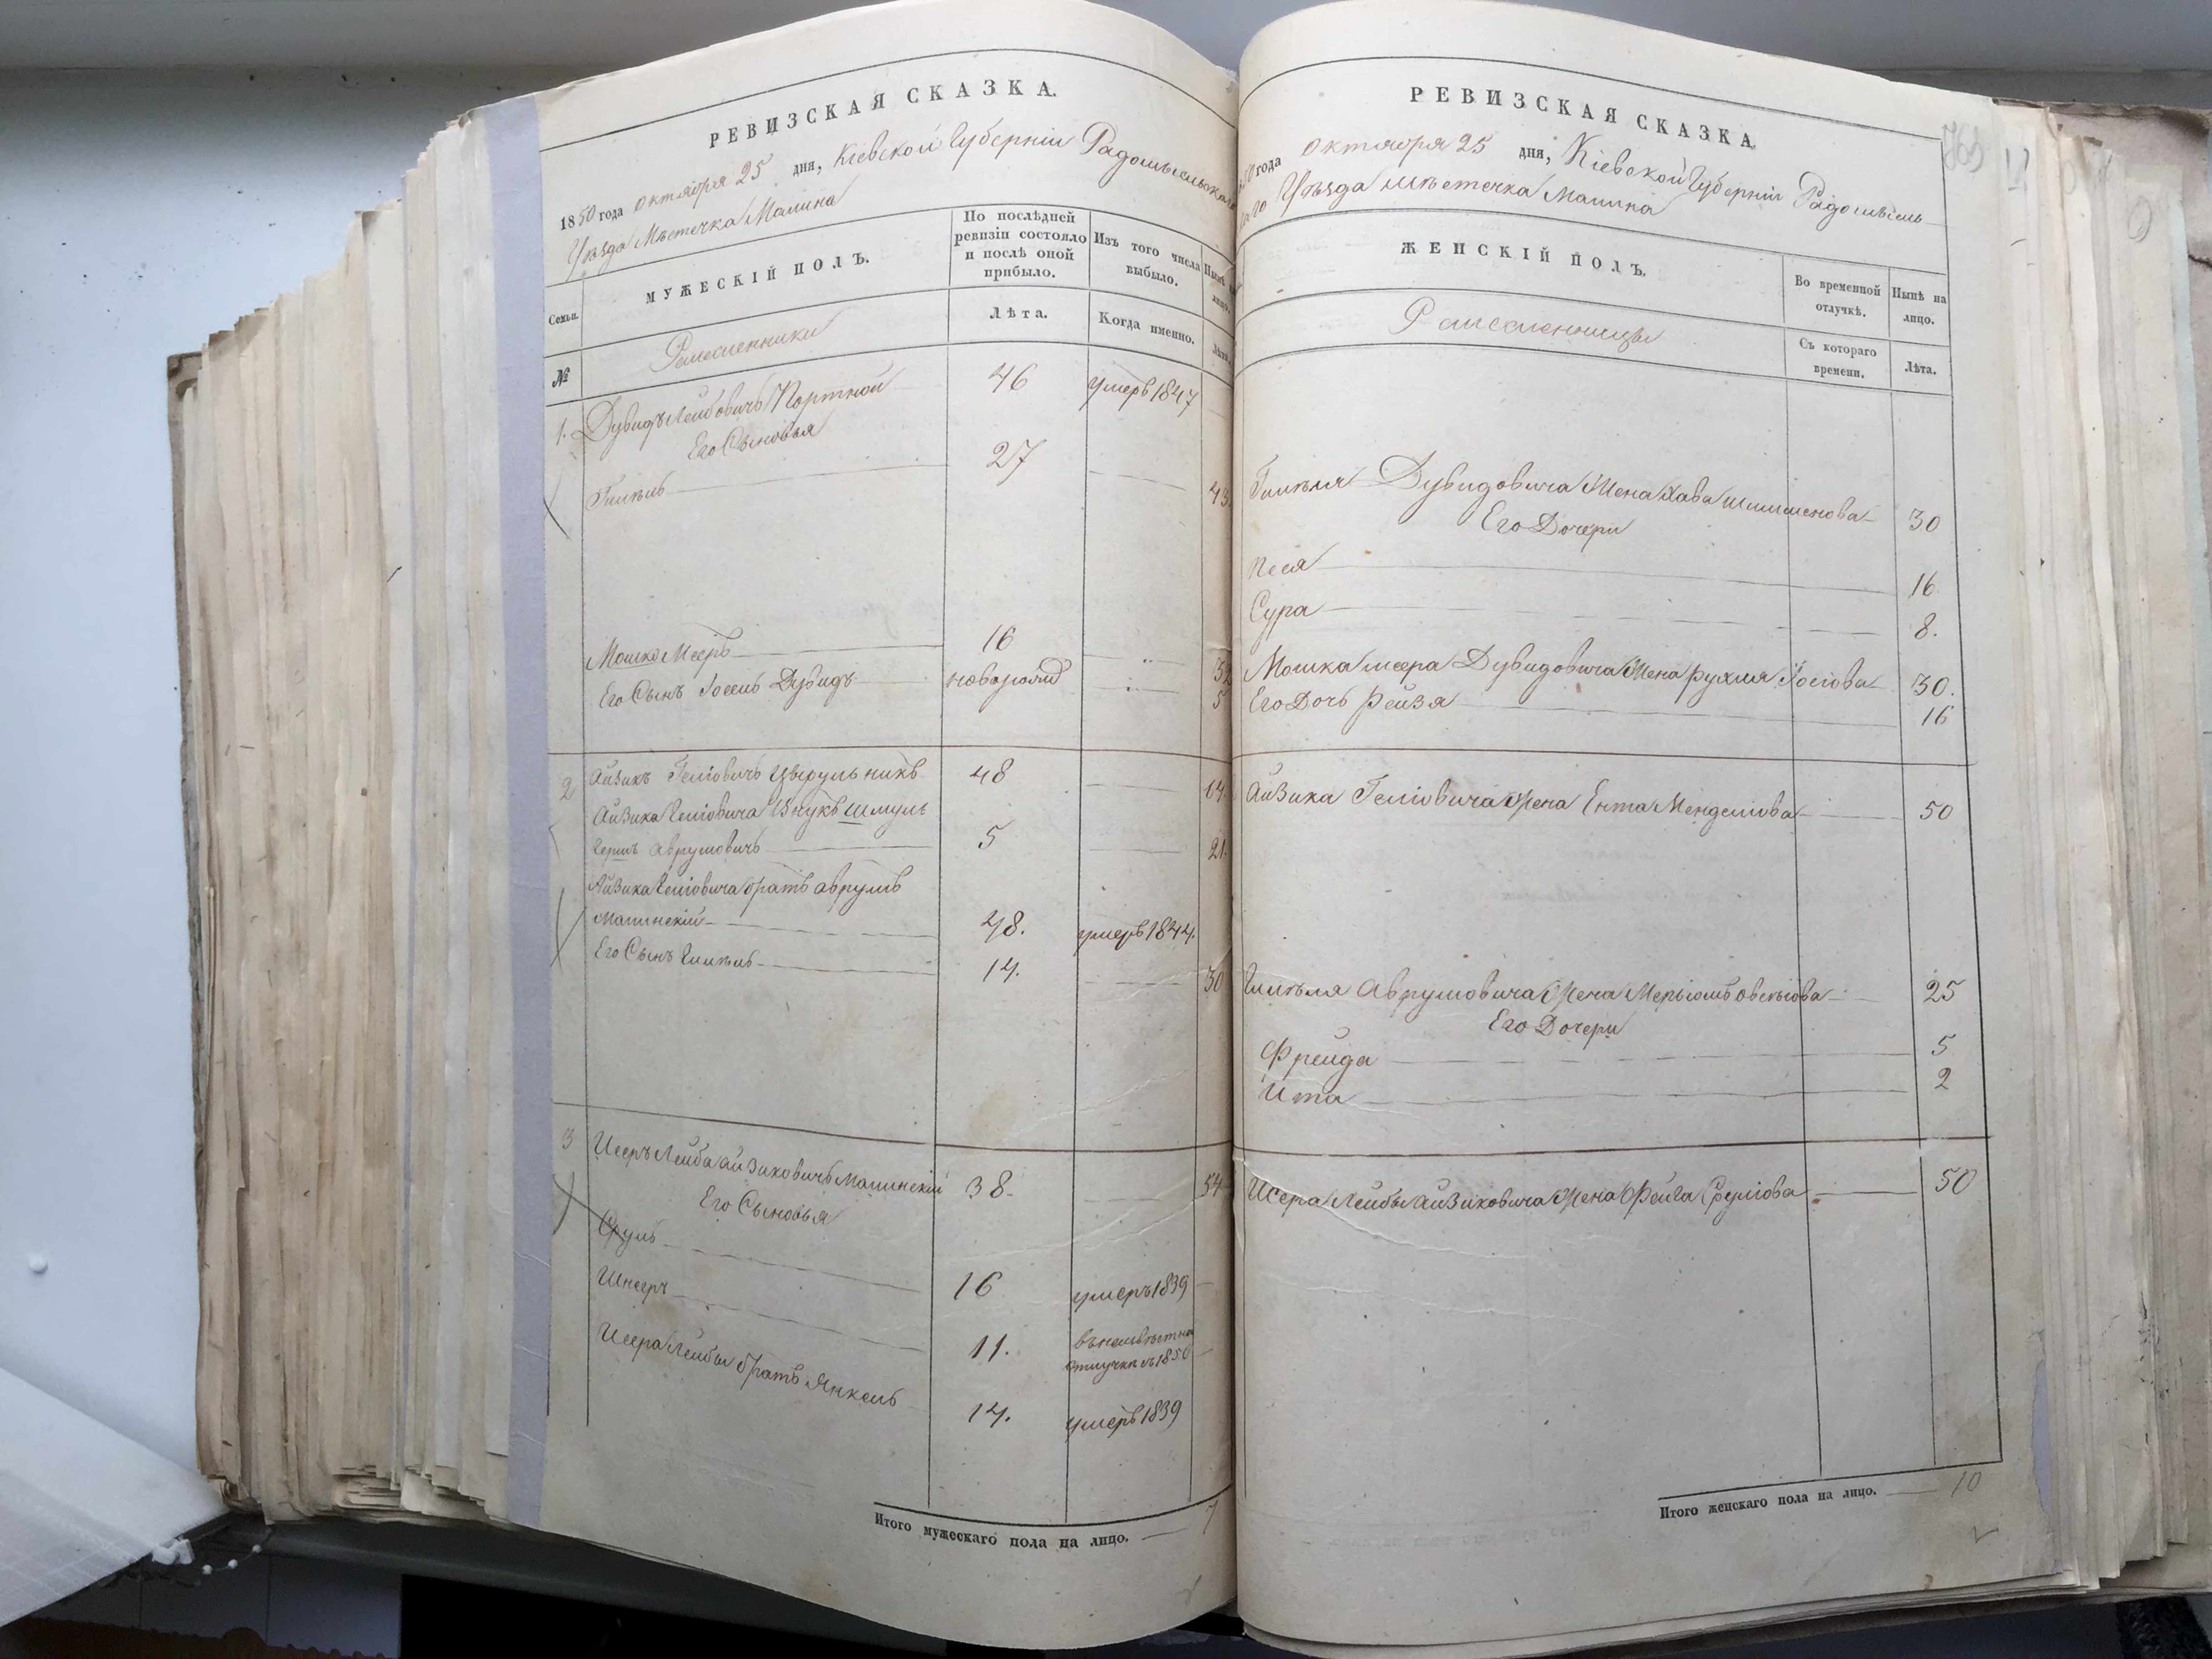 РЕВИЗСКАЯ СКАЗКА.
1850 года октября 25 дня, Кіевской Губерніи Радомысльскаго
Уѣзда Мѣстечка Малина
Семьи.
МУЖЕСКІЙ ПОЛЪ.
По послѣдней ревизіи состояло и послѣ оной прибыло.
Изъ того числа выбыло.
Нынѣ на лицо.
№
Ремесленники
Лѣта.
Когда именно.
Лѣта.
1. Дувидъ Лейбовичъ Портной 46 умеръ 1847
Его Сыновья
Гилель 27 43
Мошко Мееръ 16 32
Его Сынъ Іосель Дувидъ новорожд 5
2 Айзикъ Геліовичъ Цырульникъ 48 64
Айзика Геліовича Внукъ Шмуль
Гершъ Аврумовичъ 5 21.
Айзика Геліовича братъ Аврумъ
Малинскій 48. умеръ 1844.
Его Сынъ 14. 30
3 Исеръ Лейба Айзиковичъ Малинскій 38. 54
Его Сыновья
Сруль 16 умеръ 1839
Шнееръ 11. въ неизвѣстной
отлучкѣ съ 1850
Исера Лейбы братъ Янкель 14. умеръ 1839
Итого мужескаго пола на лицо. 7
РЕВИЗСКАЯ СКАЗКА.
года октября 25 дня, Кіевской Губерніи Радомысль
скаго Уѣзда мѣстечка Малина
ЖЕНСКІЙ ПОЛЪ.
Во временной отлучкѣ.
Нынѣ на лицо.
Съ котораго времени.
Лѣта.
Дувидовича Жена Хава 30
Его Дочери
Песя 16
Сура 8.
Мошка Меера Дувидовича Жена Рухля Іосіова 30.
Его Дочь Рейзя 16
Айзика Геліовича Жена Ента Менделіова 50
Аврумовича Жена 25
Его Дочери
Фрейда 5
Ита 2
Исера Лейбы Айзиковича Жена Фейга Сруліова 50
Итого женскаго пола на лицо. 10